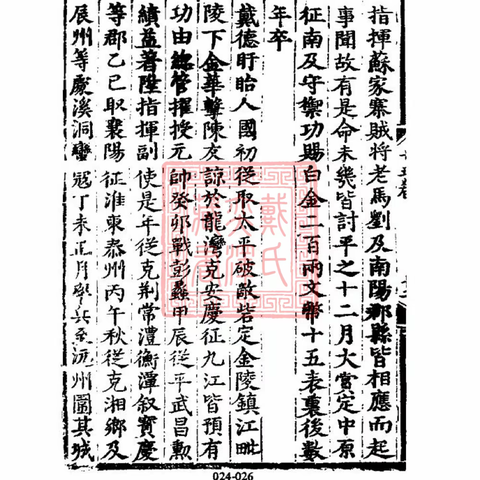 指揮蘇家寨賊將老馬劉及南陽郡縣皆相應而起
事聞故有是命未幾皆討平之十二月大賞定中原
征南及守禦功賜白金二百兩文幣十五表裏後數
年卒
戴德盱眙人國初從取太平破敵砦定金陵鎮江毗
陵下金華擊陳友諒於龍灣克安慶征九江皆預有
功由總管擢授元帥癸卯戰彭蠡甲辰從平武昌勲
績益著陞指揮副使是年從克荆常澧衡潭叙寶慶
等郡乙巳取襄陽征淮東泰州丙午秋從克湘鄉及
辰州等處溪洞蠻寇丁未正月兵至沅州圍其城
戴氏
024-026